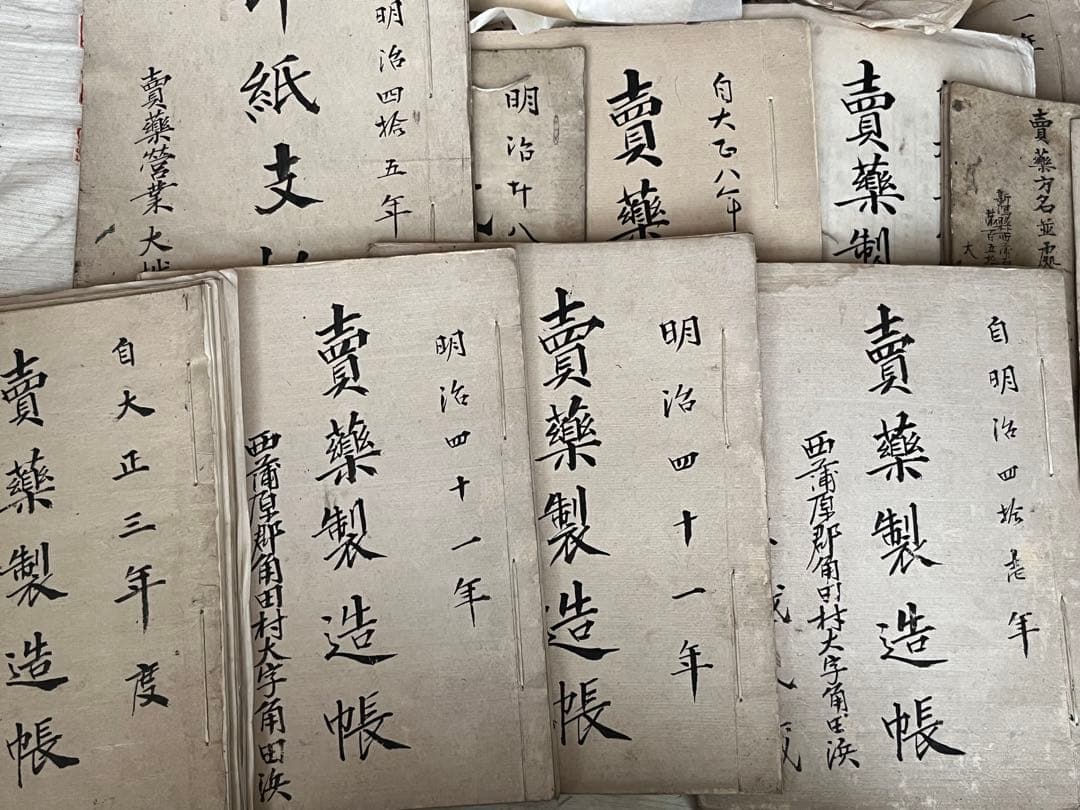 明治四拾五年
印紙支
賣藥營業大
明治廿八
自大正八年
賣藥
賣藥製
一年
賣藥方名並處
大
自大正三年度
賣藥製造帳
明治四十一年
賣藥製造帳
西蒲原郡角田村大字角田浜
明治四十一年
賣藥製造帳
自明治四拾壱年
賣藥製造帳
西蒲原郡角田村大字角田浜